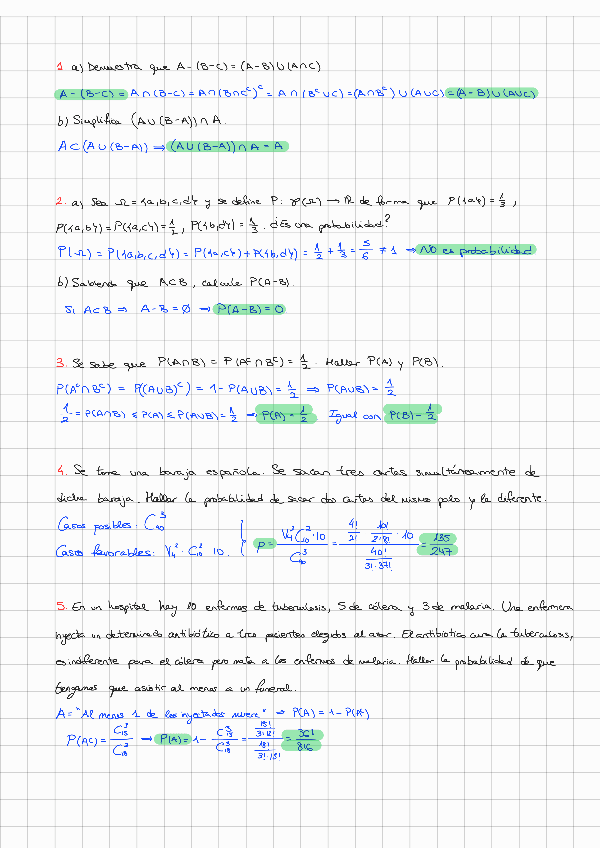 1. a) Demuestra que A - (B-C) = (A-B) ∪ (A∩C)
A - (B-C) = A ∩ (B-C) = A ∩ (B∩Cᶜ)ᶜ = A ∩ (Bᶜ ∪ C) = (A∩Bᶜ) ∪ (A∪C) = (A-B) ∪ (A∪C)
b) Simplifica (A ∪ (B-A)) ∩ A.
A ⊂ (A ∪ (B-A)) ⇒ (A∪(B-A)) ∩ A = A
2. a) Sea Ω = {a,b,c,d} y se define P: 𝒫(Ω) → ℝ de forma que P({a}) = 1/3,
P({a,b}) = P({a,c}) = 1/2, P({b,d}) = 1/3. ¿Es una probabilidad?
P(Ω) = P({a,b,c,d}) = P({a,c}) + P({b,d}) = 1/2 + 1/3 = 5/6 ≠ 1 → No es probabilidad
b) Sabiendo que A⊂B, calcule P(A-B).
Si A⊂B ⇒ A-B = ∅ → P(A-B) = 0
3. Se sabe que P(A∩B) = P(Aᶜ∩Bᶜ) = 1/2. Hallar P(A) y P(B).
P(Aᶜ∩Bᶜ) = P((A∪B)ᶜ) = 1 - P(A∪B) = 1/2 ⇒ P(A∪B) = 1/2
1/2 = P(A∩B) ≤ P(A) ≤ P(A∪B) = 1/2 → P(A) = 1/2 Igual con P(B) = 1/2
4. Se toma una baraja española. Se sacan tres cartas simultáneamente de
dicha baraja. Hallar la probabilidad de sacar dos cartas del mismo palo y la diferente.
Casos posibles: C₄₀³
Casos favorables: V₄² · C₁₀² · 10. } p = (V₄² C₁₀² · 10)/C₄₀³ = (4!/2! · 10!/(2!·8!) · 10)/(40!/(3!·37!)) = 135/247
5. En un hospital hay 10 enfermos de tuberculosis, 5 de cólera y 3 de malaria. Una enfermera
inyecta un determinado antibiótico a tres pacientes elegidos al azar. El antibiótico cura la tuberculosis,
es indiferente para el cólera pero mata a los enfermos de malaria. Hallar la probabilidad de que
tengamos que asistir al menos a un funeral.
A = "Al menos 1 de los inyectados muere" → P(A) = 1 - P(Aᶜ)
P(Aᶜ) = C₁₅³/C₁₈³ → P(A) = 1 - C₁₅³/C₁₈³ = (15!/(3!·12!))/(18!/(3!·15!)) = 361/816